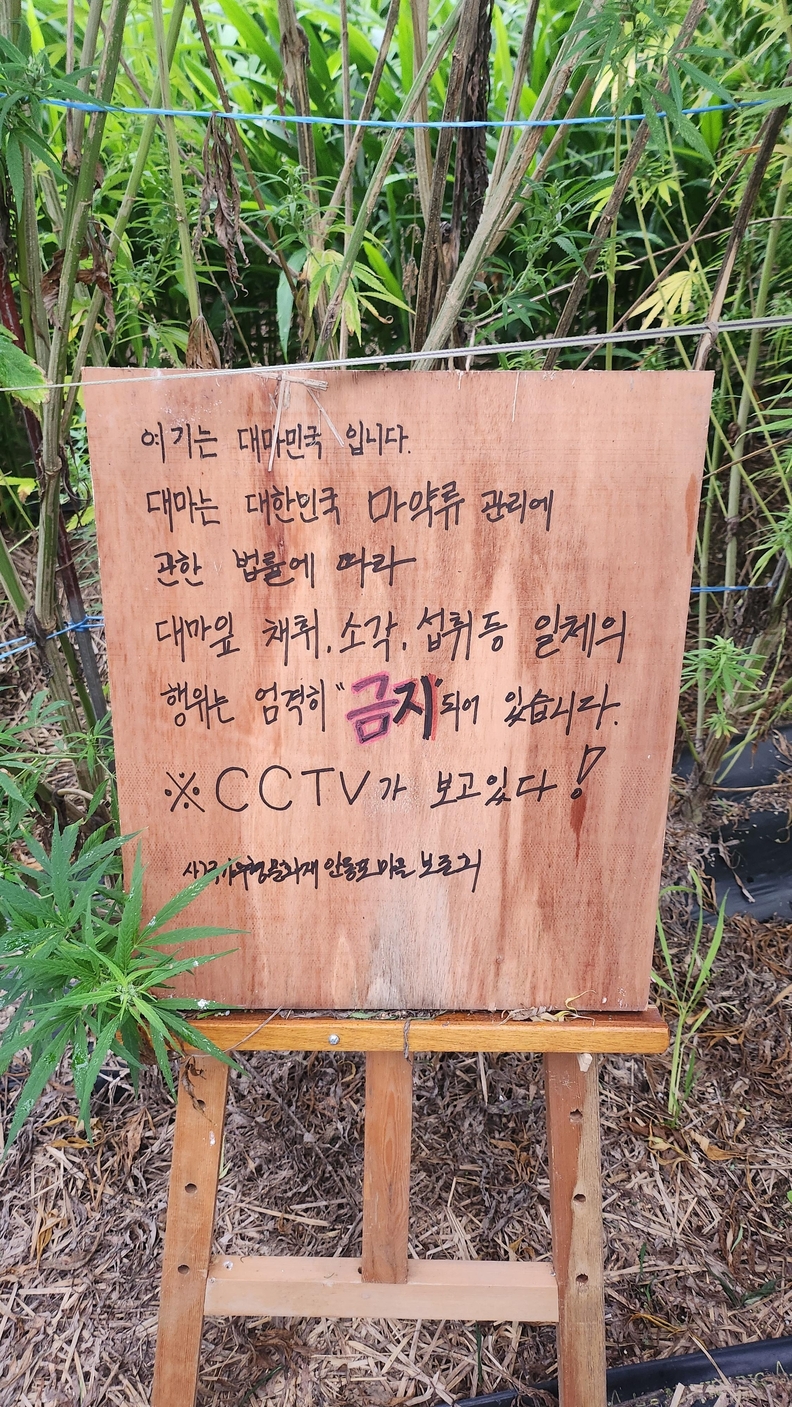 여기는 대마민국 입니다.
대마는 대한민국 마약류 관리에
관한 법률에 따라
대마잎 채취, 소각, 섭취등 일체의
행위는 엄격히 "금지"되어 있습니다.
※ CCTV가 보고있다!
안동포마을 보존회